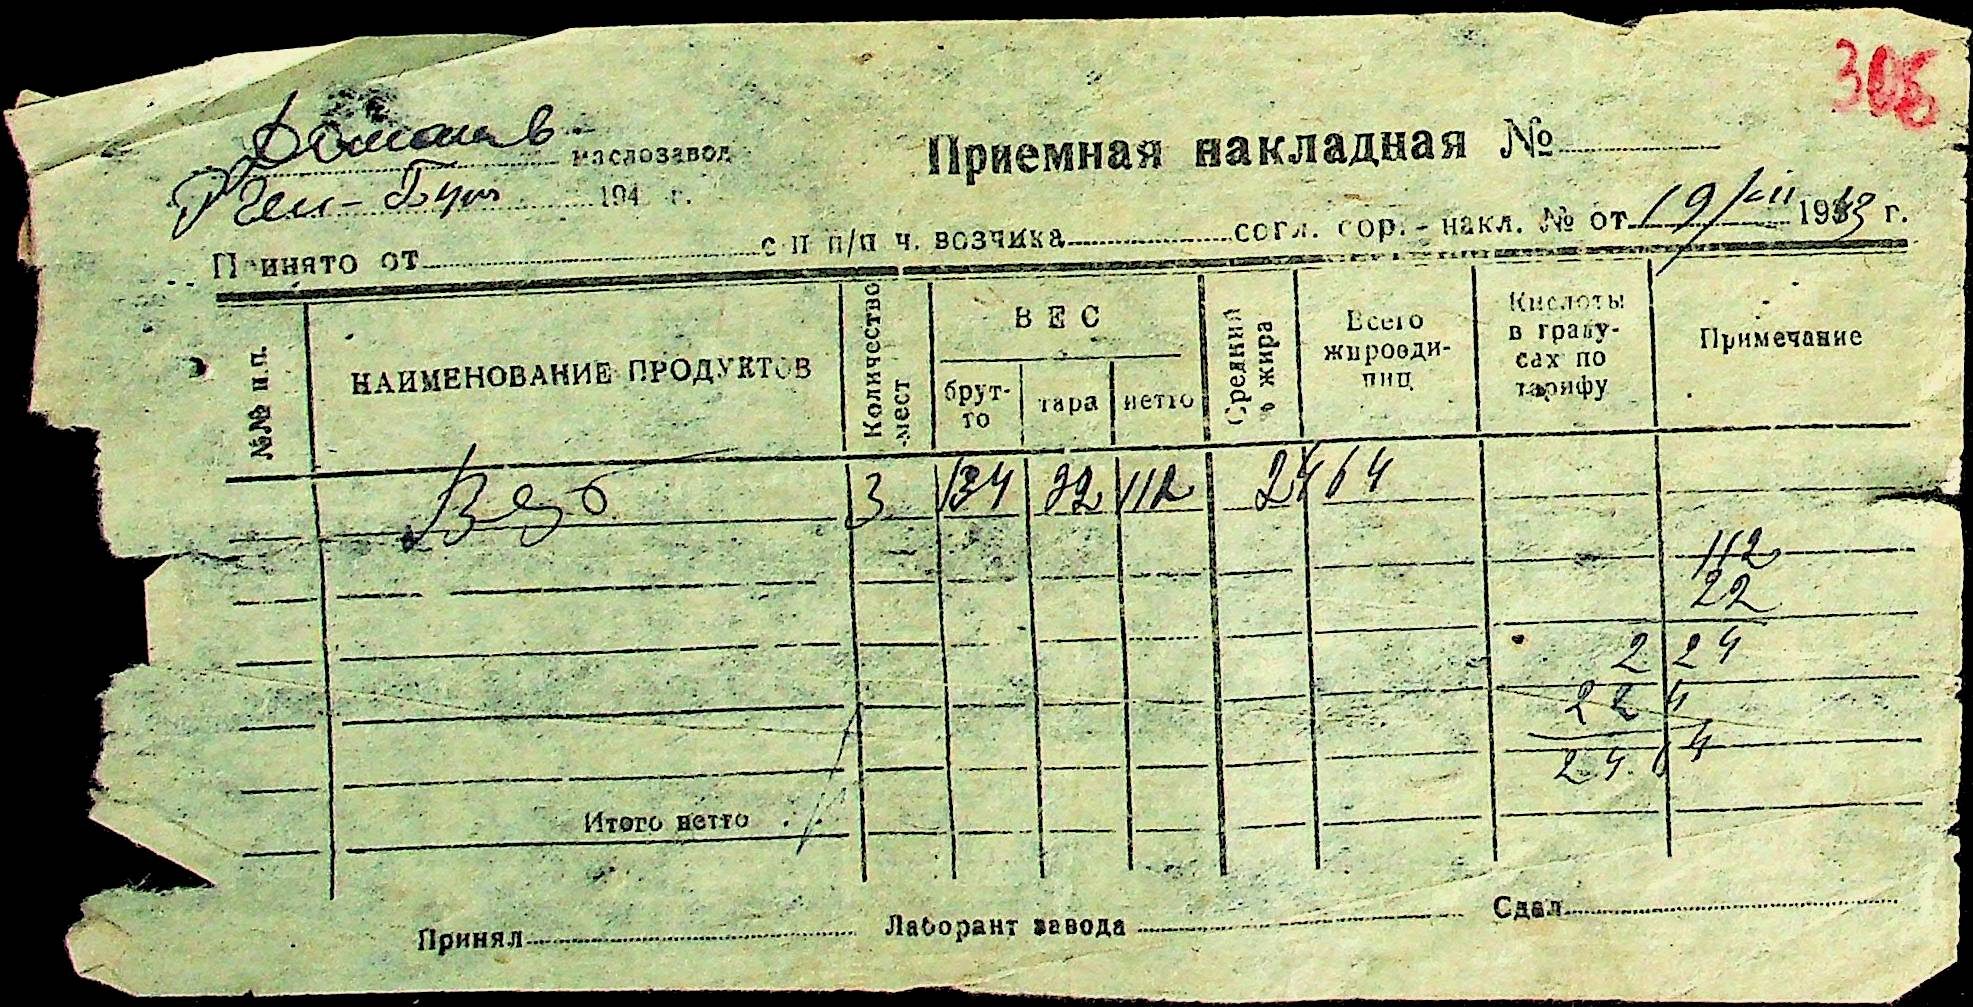 306
маслозавод
Приемная накладная №
194 г.
Принято от с п п/п ч. возчика согл. сорт. накл. № от 19/XII 1943 г.
№№ п.п.
НАИМЕНОВАНИЕ ПРОДУКТОВ
Количество мест
ВЕС
брут-
то
тара
нетто
Средний % жира
Всего
жироеди-
ниц
Кислоты
в граду-
сах по
тарифу
Примечание
3 134 22 112 2464
112
22
224
224
24.64
Итого нетто
Принял Лаборант завода Сдал